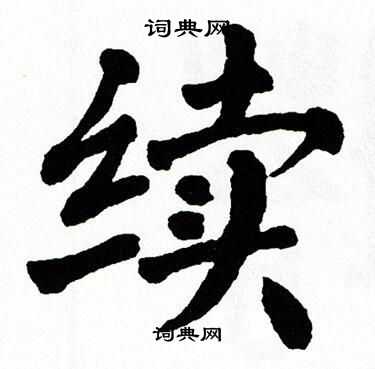 词典网
续
词典网